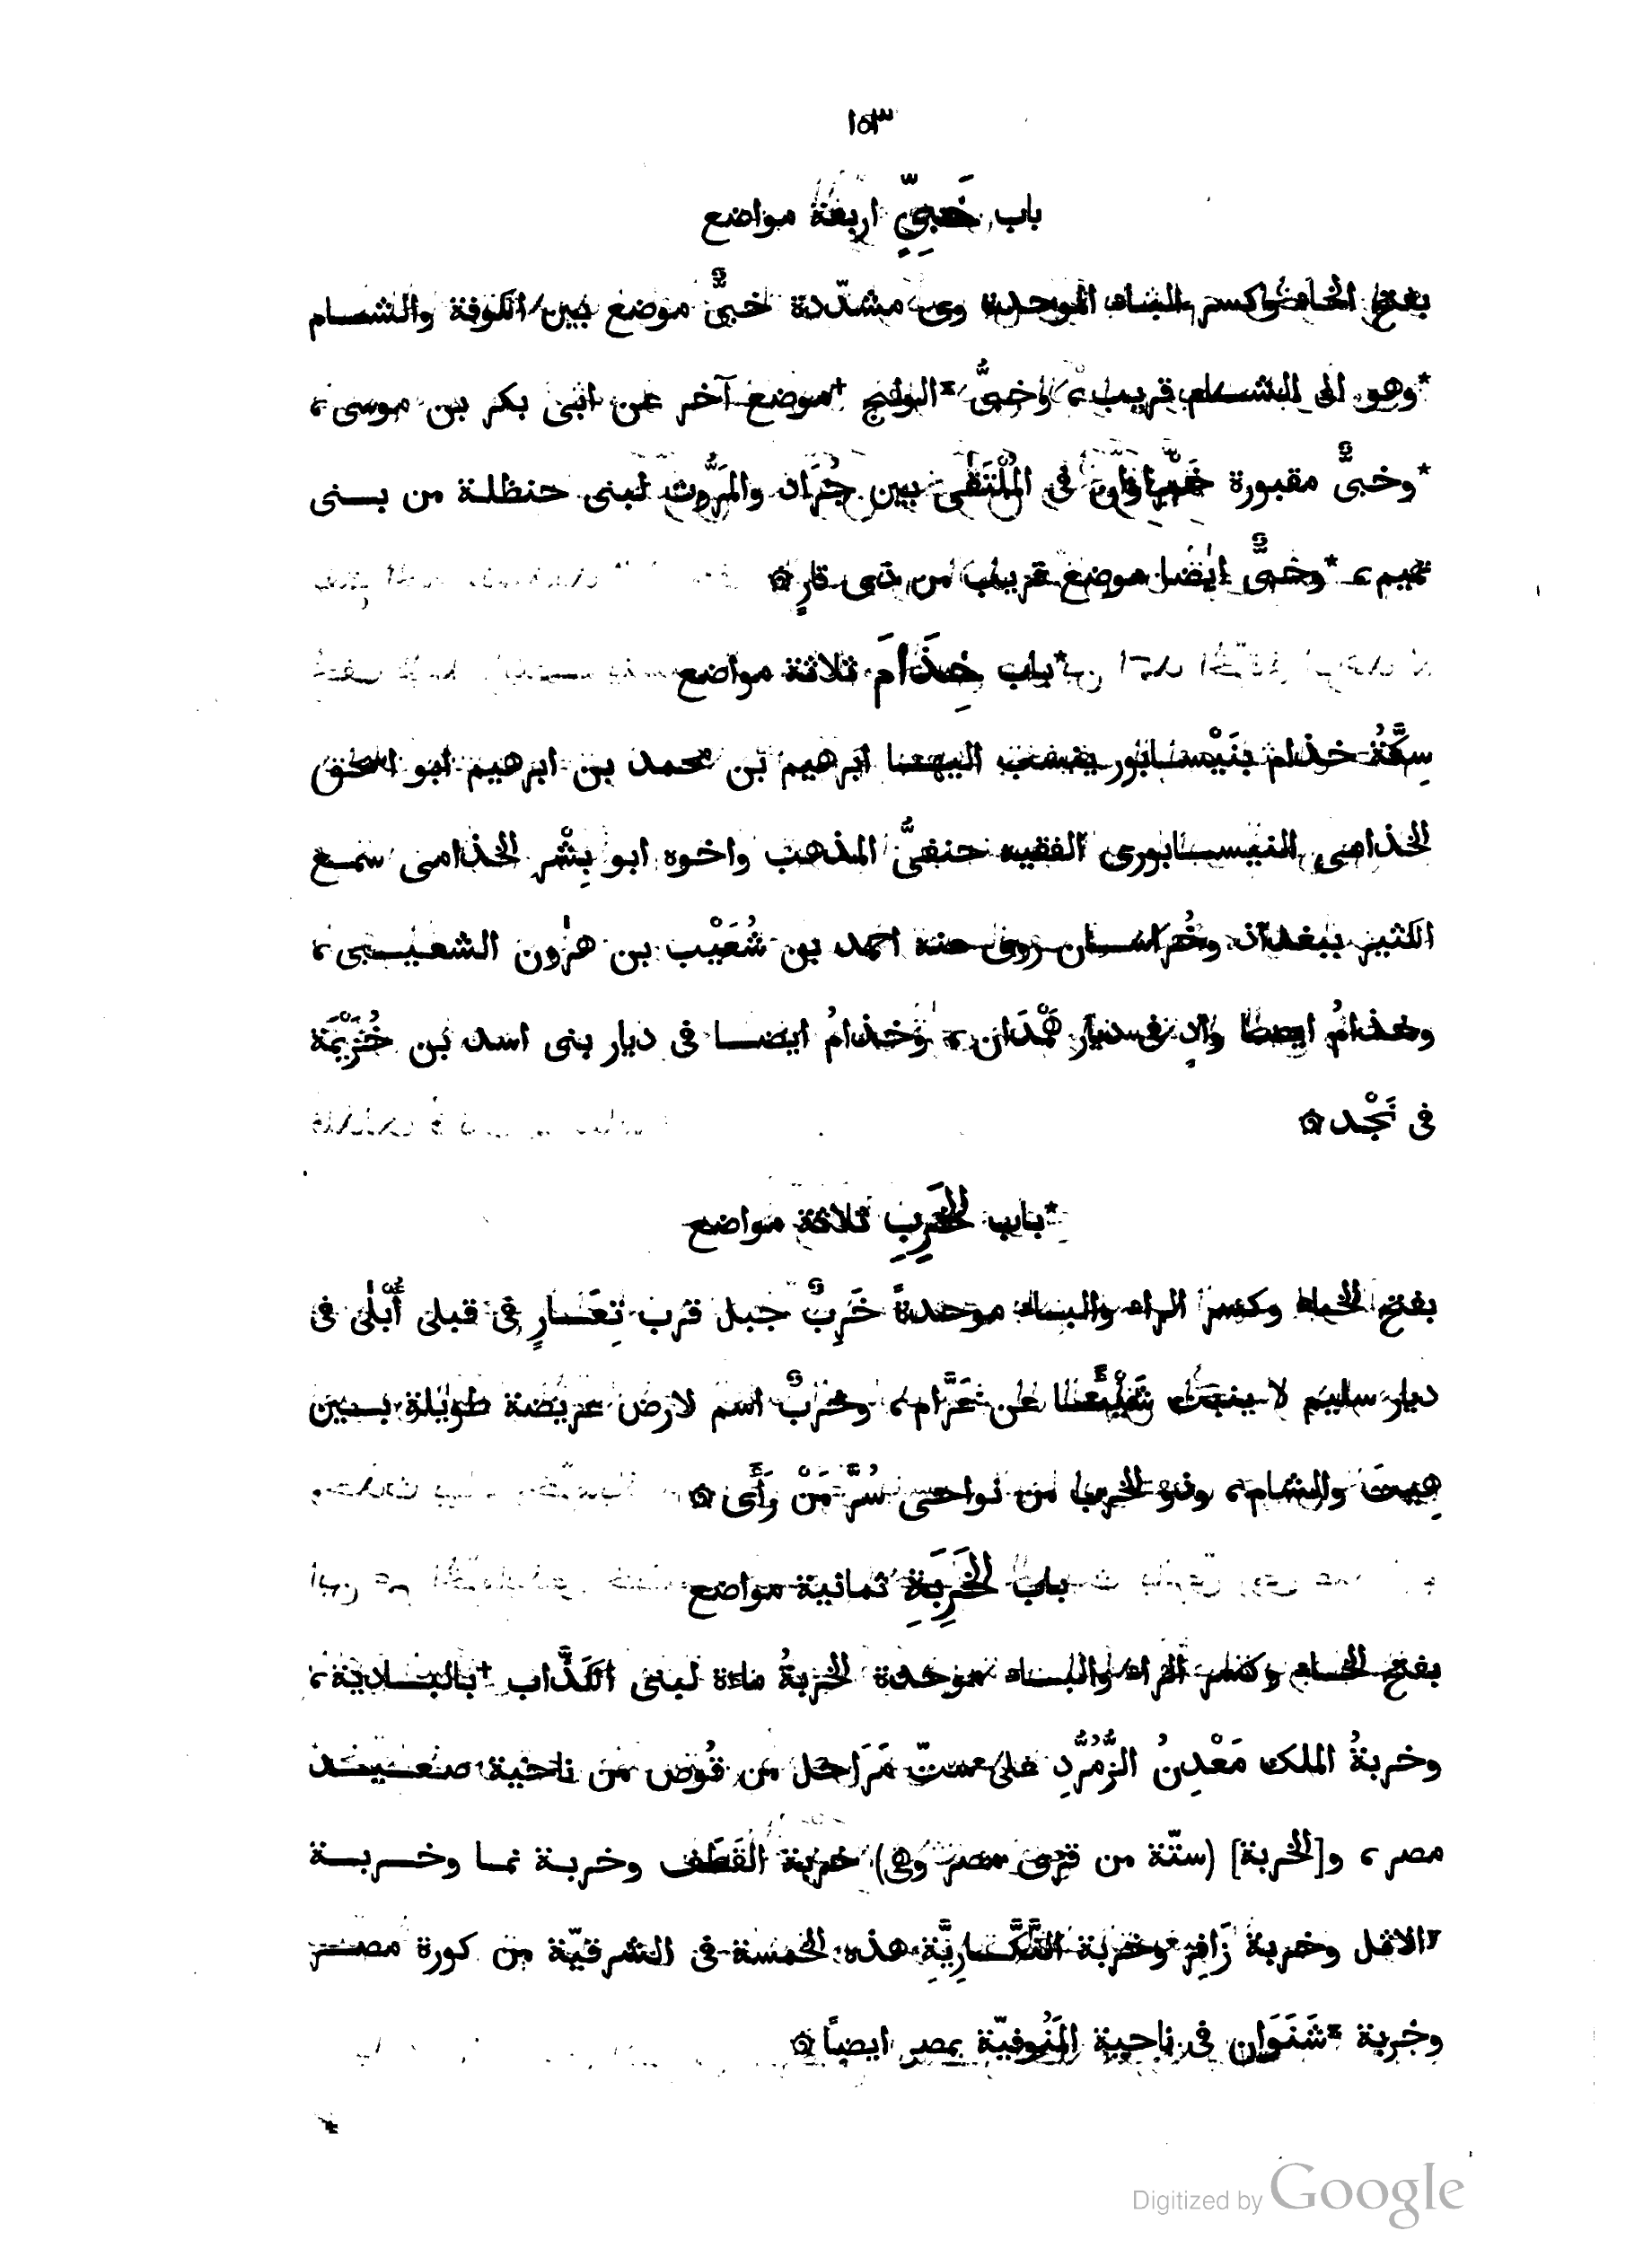 ١٥٣
باب خَبِيٍّ اربعة مواضع
بفتح الخاء وكسر الباء الموحدة وى مشدّدة خبىٌّ موضع بين الكوفة والشام
*وهو الى الشام قريب، وخبىُّ *الوالج †موضع آخر عن ابى بكر بن موسى،
*وخبىٌّ مقبورة خَبْراوان فى المُلْتَقَى بين جُرَاد والمَرُّوت لبنى حنظلة من بنى
تميم، *وخبىٌّ ايضا موضع قريب من ذى قارٍ ۞
*باب خِذَامَ ثلاثة مواضع
سِكَّةُ خذام بنَيْسابور ينسب اليها ابرهيم بن محمد بن ابرهيم ابو اسحق
الخذامى النيسابورى الفقيه حنفىُّ المذهب واخوه ابو بِشْر الخذامى سمع
الكثير ببغداد وخُراسان روى عنه احمد بن شُعَيْب بن هرٰون الشعيبى،
وخذامُ ايضا وادٍ فى ديار هَمْدَان، وخذامُ ايضا فى ديار بنى اسد بن خُزَيْمَة
فى نَجْد ۞
*باب الخَرِبِ ثلاثة مواضع
بفتح الخاء وكسر الراء والباء موحدةً خَرِبٌ جبل قرب تِعَارٍ فى قبلى أُبْلَى فى
ديار سليم لا ينبت شَيْئًا عن عَرَّام، وخربٌ اسم لارض عريضة طويلة بين
هِيتَ والشام، وذو الخرب من نواحى سُرَّ مَنْ رَأَى ۞
باب الخَرِبَةِ ثمانية مواضع
بفتح الخاء وكسر الراء والباء موحدة الخربةُ ماءة لبنى الكَذَّاب †بالبادية،
وخربةُ الملك مَعْدِنُ الزُّمُرُّدِ على ستّ مَرَاحل من قُوص من ناحية صعيد
مصر، و[الخربة] (ستّة من قرى مصر وهى) خربة القَطَف وخربة نما وخربة
٢الاثل وخربة زَافِر وخربة النَّكَّارِيَّةِ هذه الخمسة فى الشرقيّة من كورة مصر
وخربة *شَنَوَان فى ناحية المَنُوفيّة بمصر ايضاً ۞
Digitized by Google